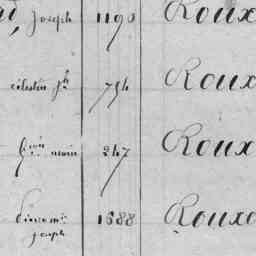 Joseph 1190 Roux
célestin Jh 754 Roux
marie 247 Roux
joseph 1688 Roux